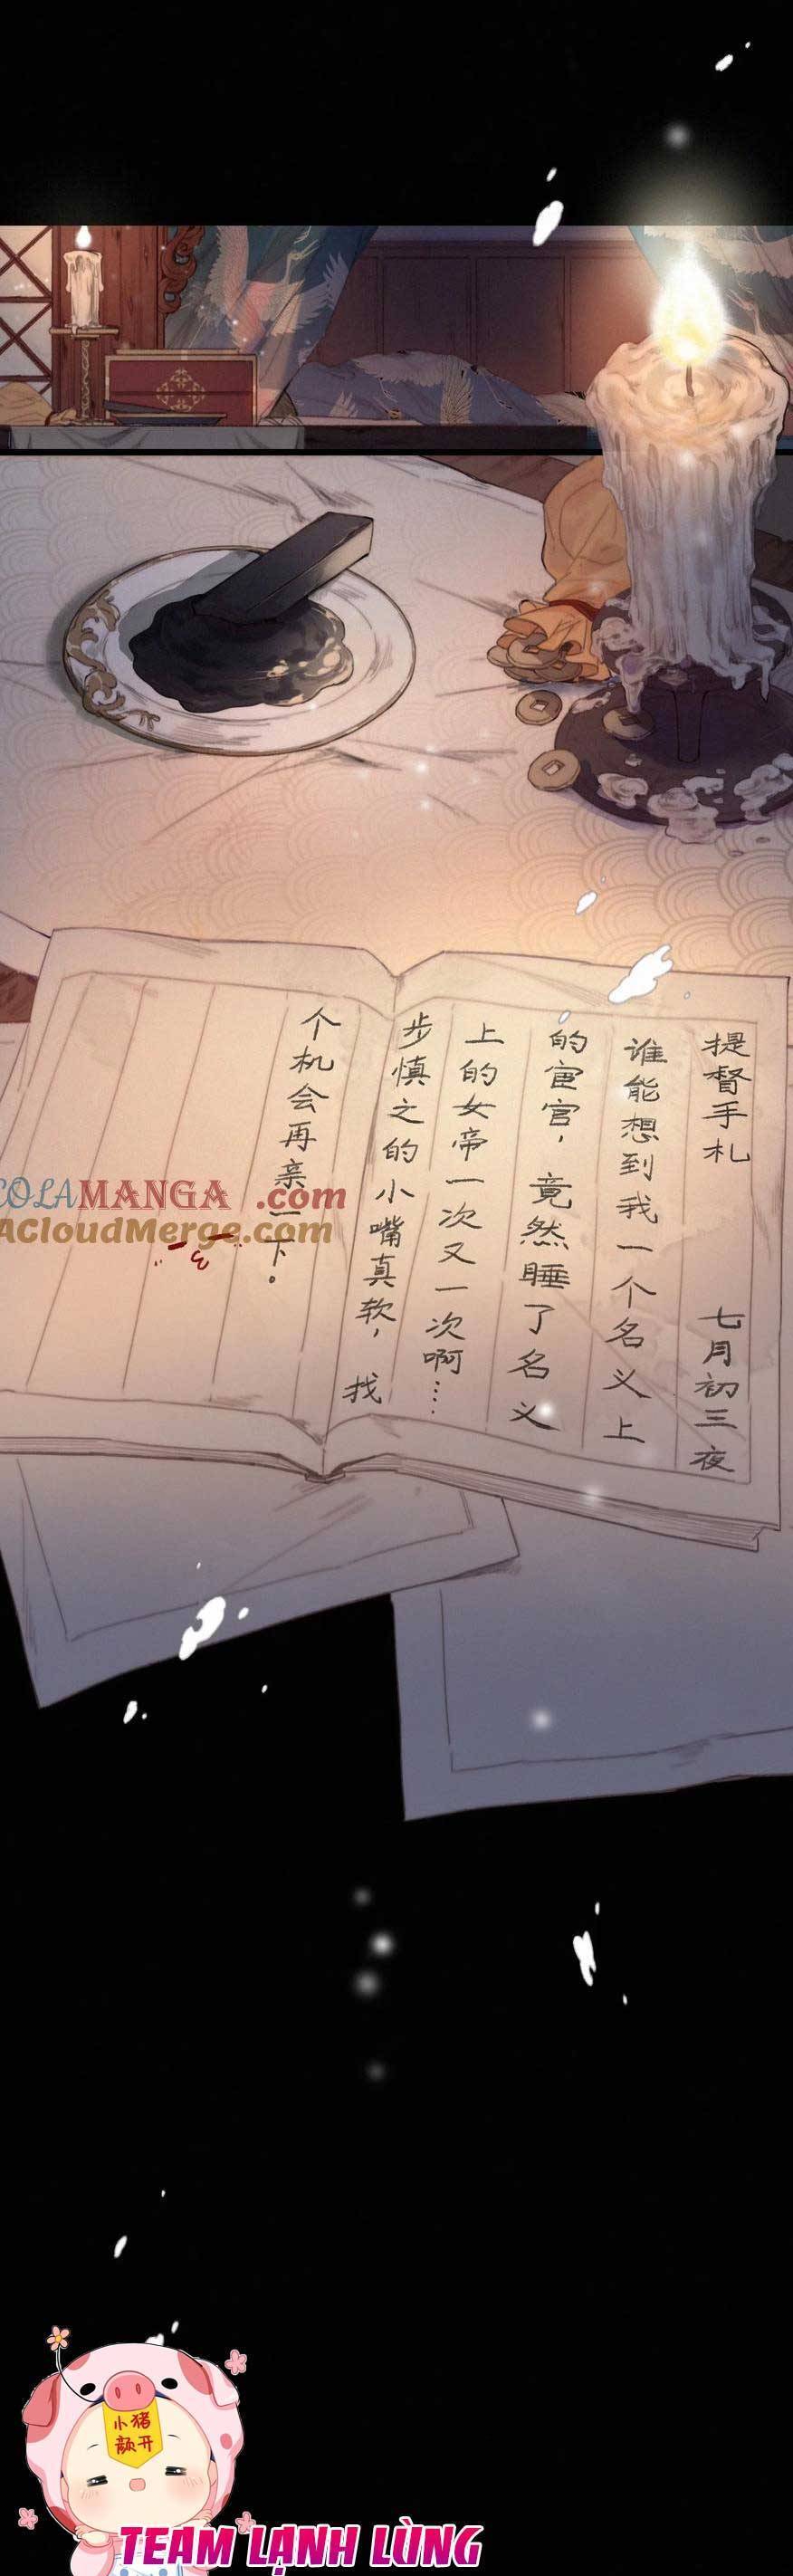 提督手札 七月初三夜
谁能想到我一个名义上
的宦官，竟然睡了名义
上的女帝一次又一次啊……
步慎之的小嘴真软，找
个机会再亲一下。
COLAMANGA.com
ACloudMerge.com
小猪
颜开
TEAM LẠNH LÙNG